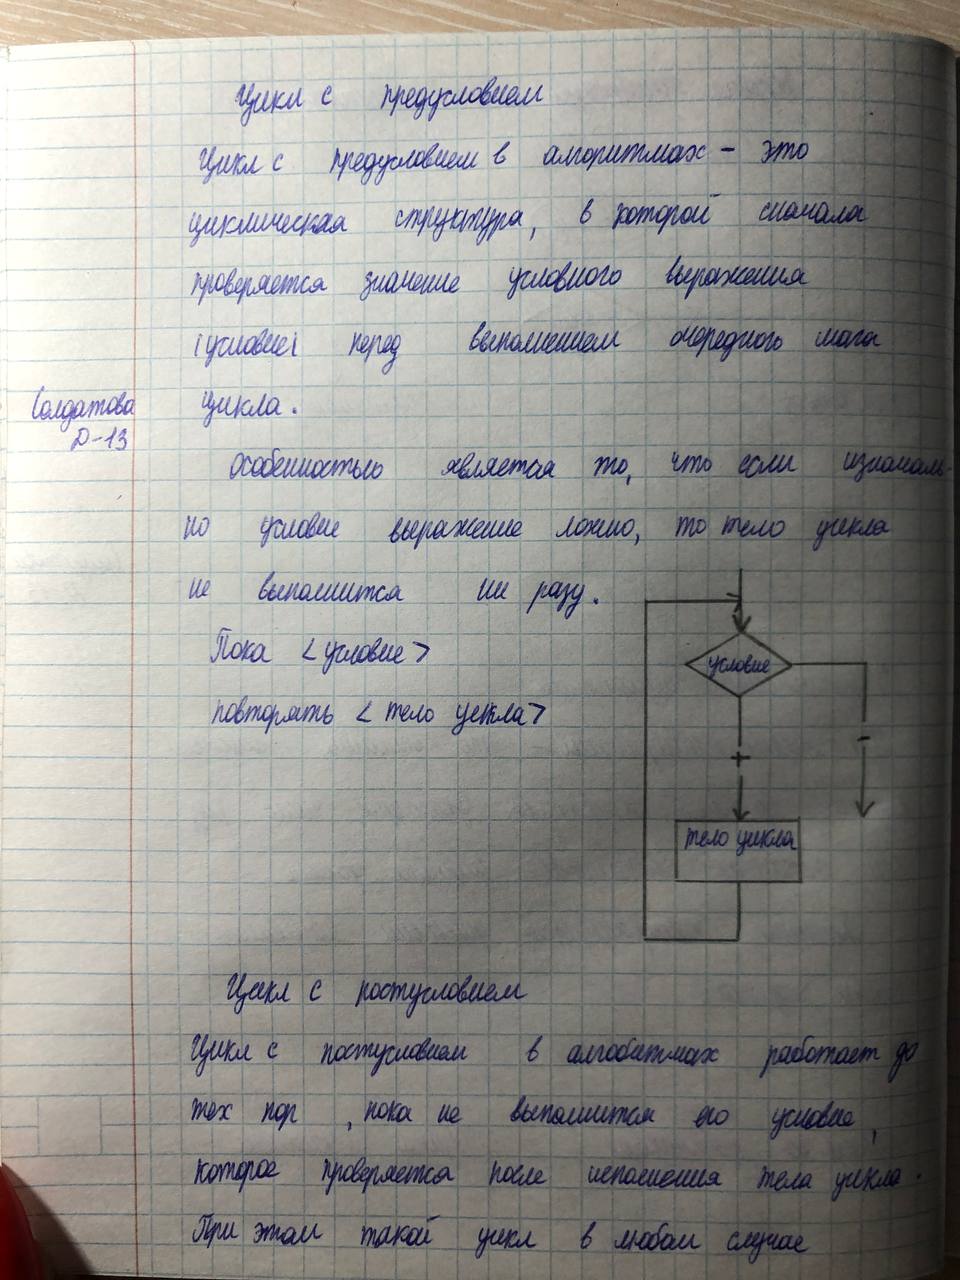 Цикл с предусловием
Цикл с предусловием в алгоритмах - это
циклическая структура, в которой сначала
проверяется значение условного выражения
(условие) перед выполнением очередного шага
цикла.
Солдатова
Д-13
Особенностью является то, что если изначаль-
но условие выражение ложно, то тело цикла
не выполнится ни разу.
Пока <условие>
повторять <тело цикла>
условие
+
-
тело цикла
Цикл с постусловием
Цикл с постусловием в алгобитмах работает до
тех пор , пока не выполнится его условие,
которое проверяется после исполнения тела цикла.
При этом такой цикл в любом случае